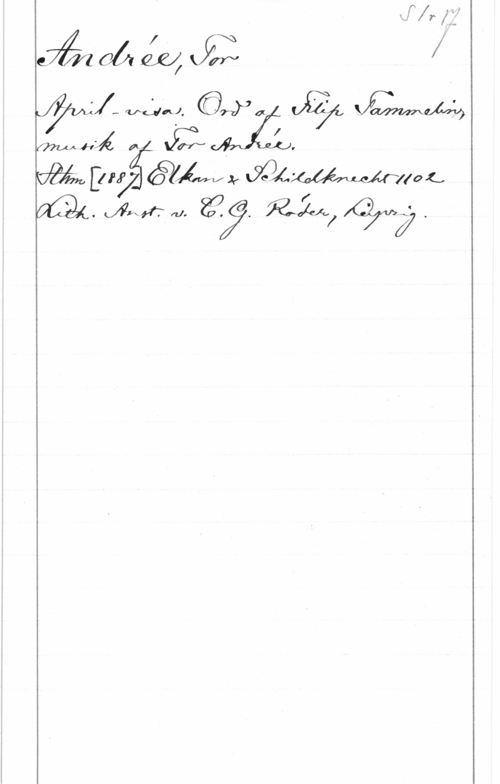 S/r
Andrée, Tor
April-visa. Ord af Filip Tammelin,
musik af Tor Andrée.
Sthm [1887] Elkan & Schildknecht 1102
Lith. Anst. v. C. G. Röder, Leipzig.